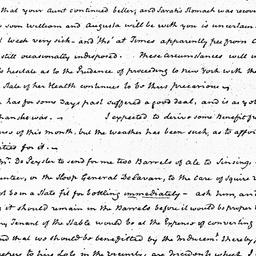 that your aunt continued better, and Sarah's stomach was recov
soon William and Augusta will be with you is uncertain
l week very sick - and tho' at Times apparently free from
still occasionally indisposed. These circumstances will
to hesitate as to the Prudence of proceeding to New York with the
State of her Health continues to be thus precarious.
has for some Days past suffered a good deal, and is as yet
than she was. - I expected to derive some Benefit fr
of this month, but the weather has been such, as to affo
ities for it. -
Mr. De Peyster to send for me two Barrels of Ale to Sinsing
, or the Sloop General Delavan, to the care of Squire
not be in a State fit for bottling immediately - ask him, an
it should remain in the Barrels before it would be proper t
Tenant of the Stable would be at the Expense of converting
and that we should be benefitted by the Increase thereby
to his Lots in the vicinity, are Incidents which I